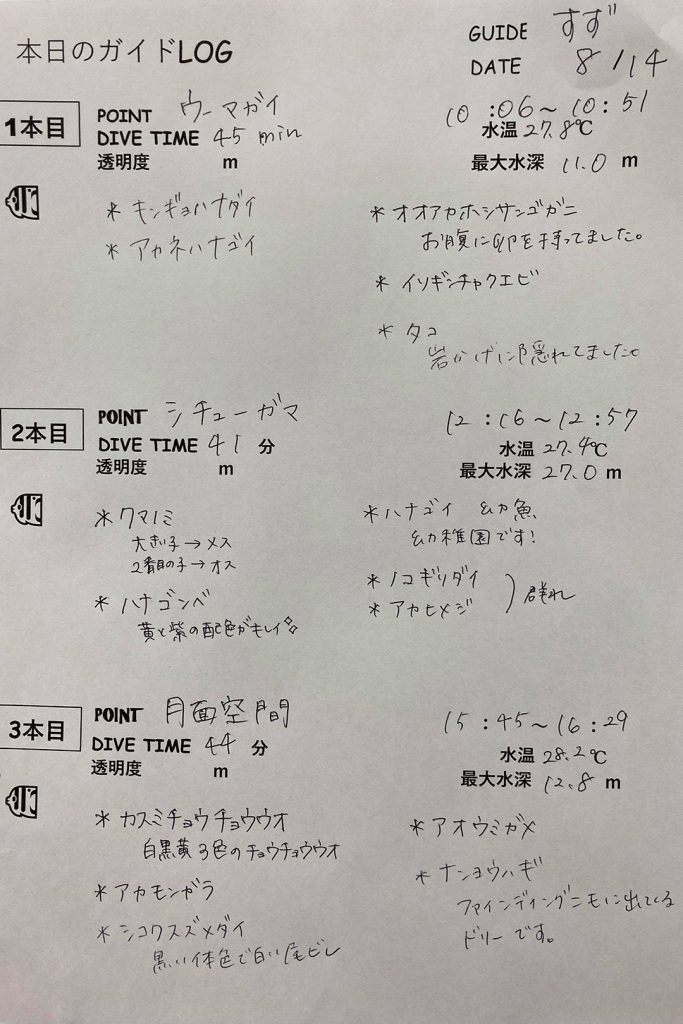 本日のガイドLOG
GUIDE すず
DATE 8/14
1本目
POINT ウーマガイ
DIVE TIME 45 min
透明度 m
10:06～10:51
水温 27.8℃
最大水深 11.0 m
* キンギョハナダイ
* アカネハナゴイ
* オオアカホシサンゴガニ
お腹に卵を持ってました。
* イソギンチャクエビ
* タコ
岩かげに隠れてました。
2本目
POINT シチューガマ
DIVE TIME 41 分
透明度 m
12:16～12:57
水温 27.4℃
最大水深 27.0 m
* クマノミ
大きい子→メス
2番目の子→オス
* ハナゴンベ
黄と紫の配色がキレイ
* ハナゴイ 幼魚
幼稚園です!
* ノコギリダイ
* アカヒメジ
) 群れ
3本目
POINT 月面空間
DIVE TIME 44 分
透明度 m
15:45～16:29
水温 28.2℃
最大水深 12.8 m
* カスミチョウチョウウオ
白黒黄3色のチョウチョウウオ
* アカモンガラ
* シコクスズメダイ
黒い体色で白い尾ビレ
* アオウミガメ
* ナンヨウハギ
ファインディングニモに出てくる
ドリーです。